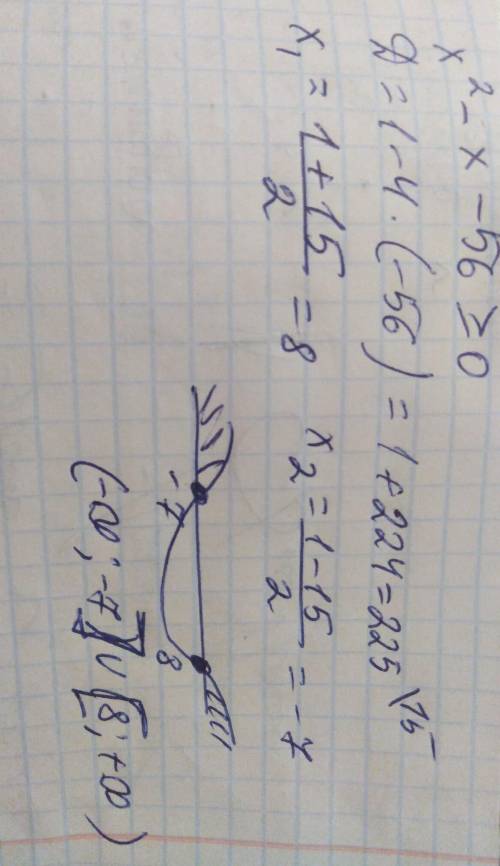 x² - x - 56 ≥ 0
D = 1 - 4 · (-56) = 1 + 224 = 225
x₁ = 1 + 15 / 2 = 8 x₂ = 1 - 15 / 2 = -7
-7 8
(-∞; -7] ∪ [8; +∞)